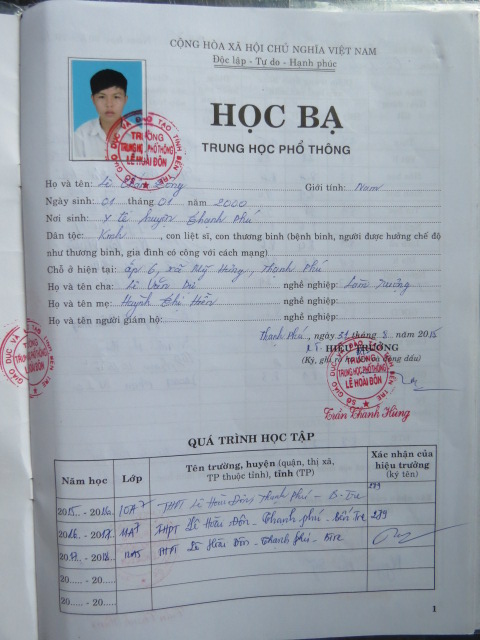 CỘNG HÒA XÃ HỘI CHỦ NGHĨA VIỆT NAM
Độc lập - Tự do - Hạnh phúc
HỌC BẠ
TRUNG HỌC PHỔ THÔNG
SỞ GIÁO DỤC VÀ ĐÀO TẠO TỈNH BẾN TRE
TRƯỜNG
TRUNG HỌC PHỔ THÔNG
LÊ HOÀI ĐÔN
Họ và tên: Lê Giới tính: Nam
Ngày sinh: 01 tháng 01 năm 2000
Nơi sinh: Y tế huyện Thạnh Phú
Dân tộc: Kinh, con liệt sĩ, con thương binh (bệnh binh, người được hưởng chế độ
như thương binh, gia đình có công với cách mạng)
Chỗ ở hiện tại: ấp 6, xã Mỹ Hưng, Thạnh Phú
Họ và tên cha: Lê Văn nghề nghiệp: Làm
Họ và tên mẹ: Huỳnh Thị nghề nghiệp:
Họ và tên người giám hộ: nghề nghiệp:
Thạnh Phú, ngày 31 tháng 8 năm 2015
HIỆU TRƯỞNG
(Ký, ghi rõ họ tên và đóng dấu)
TRƯỜNG
TRUNG HỌC PHỔ THÔNG
LÊ HOÀI ĐÔN
Trần Thanh Hùng
QUÁ TRÌNH HỌC TẬP
Năm học Lớp Tên trường, huyện (quận, thị xã, TP thuộc tỉnh), tỉnh (TP) Xác nhận của hiệu trưởng (ký tên)
2015 - 2016 10A7 THPT Lê Hoài Đôn Thạnh Phú - B.Tre
2016 - 2017 11A7 THPT Lê Hoài Đôn - Thạnh phú - Bến Tre
- 20 THPT Lê Hoài Đôn - Thạnh Phú - Btre
20..... - 20.....
20..... - 20.....
1